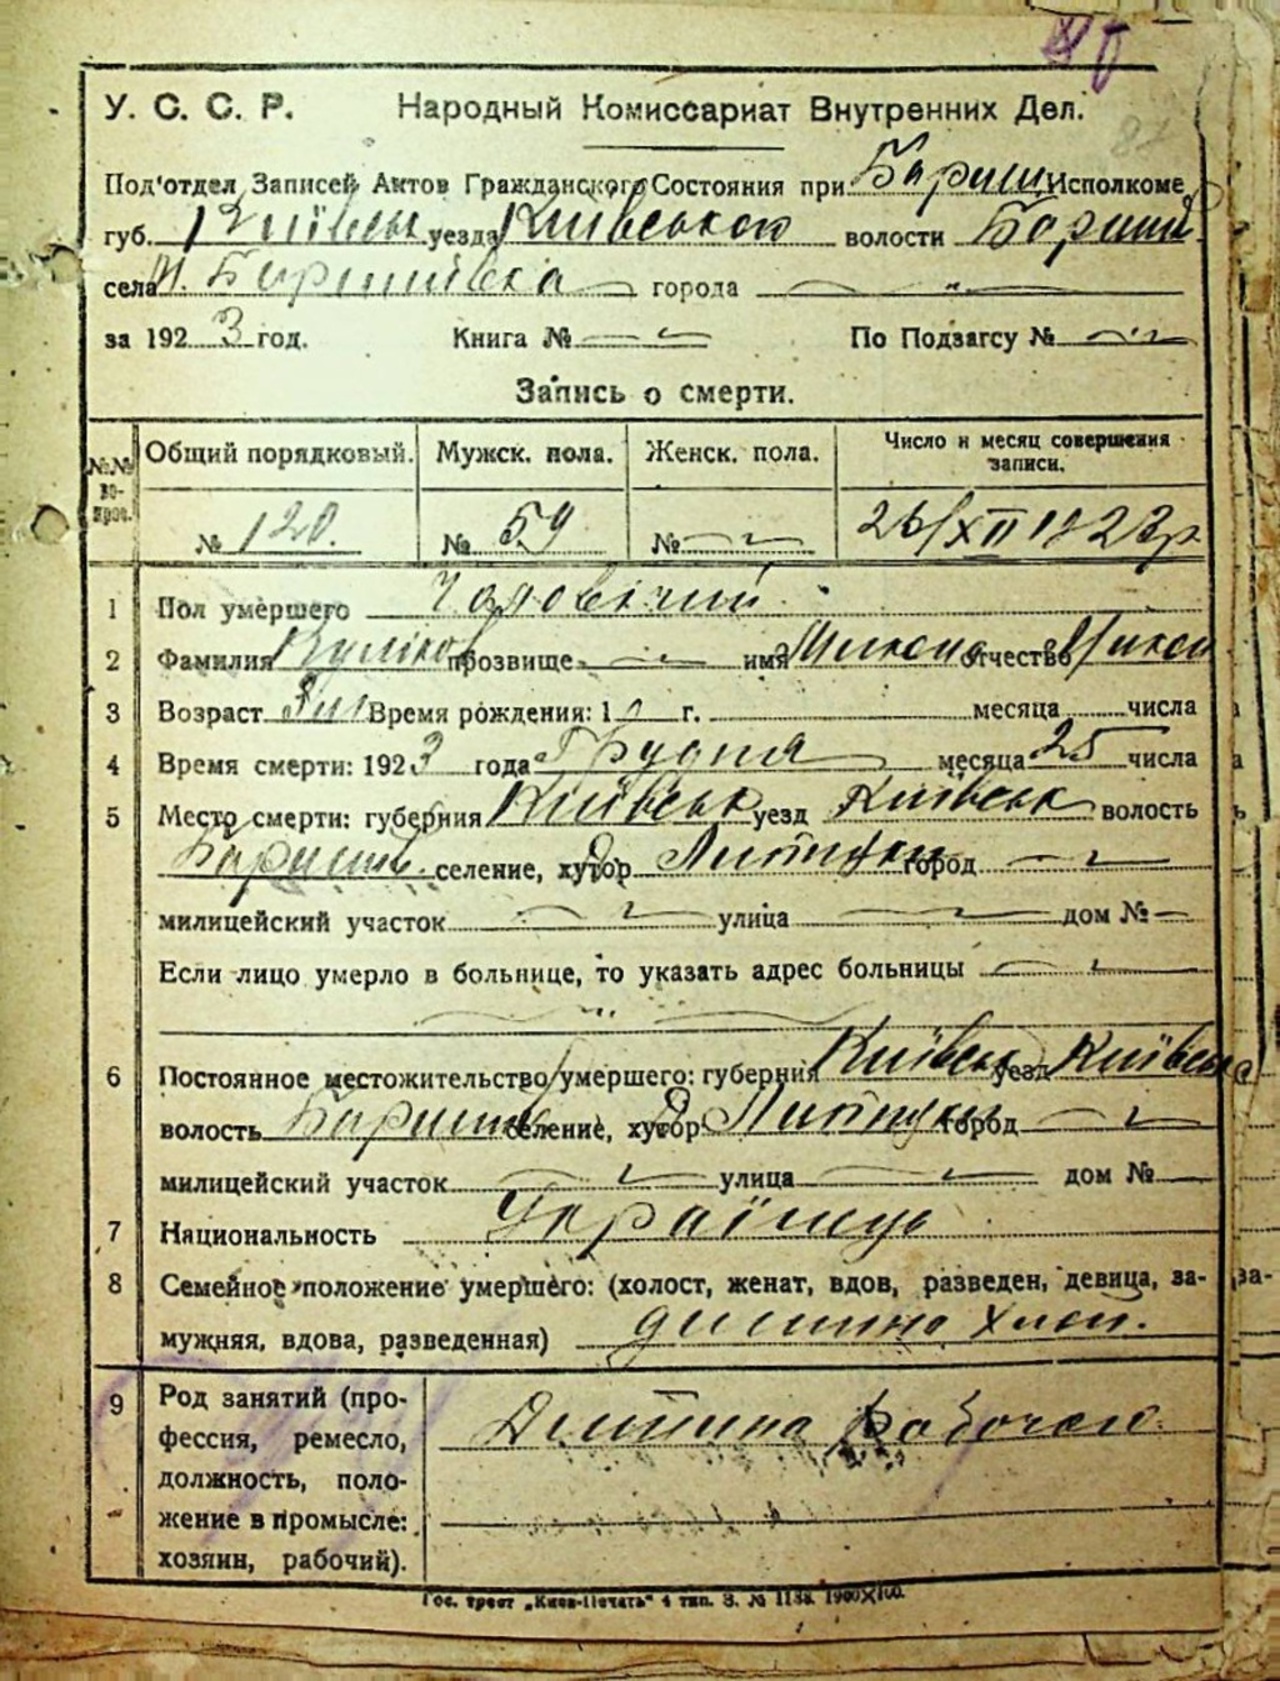 У. С. С. Р. Народный Комиссариат Внутренних Дел.
Под'отдел Записей Актов Гражданского Состояния при Бориш Исполкоме
губ. Київськ уезда Київського волости Бориш
села М. Баришівка города „
за 1923 год. Книга № По Подзагсу №
Запись о смерти.
№№ вопрос. Общий порядковый. Мужск. пола. Женск. пола. Число и месяц совершения записи.
№ 120. № 59 № 26/XII 1923р
1 Пол умершего Чоловічий
2 Фамилия Куліков прозвище имя Микола отчество Микол
3 Возраст Время рождения: 1 г. месяца числа
4 Время смерти: 1923 года Грудня месяца 25 числа
5 Место смерти: губерния Київськ уезд Київськ волость
Баришів. селение, хутор город
милицейский участок улица дом № —
Если лицо умерло в больнице, то указать адрес больницы
„
6 Постоянное местожительство умершего: губерния Київськ уезд Київськ
волость Баришів селение, хутор город
милицейский участок улица дом №
7 Национальность Українець
8 Семейное положение умершего: (холост, женат, вдов, разведен, девица, за-
мужняя, вдова, разведенная) дитина хлоп.
9 Род занятий (про-
фессия, ремесло,
должность, поло-
жение в промысле:
хозяин, рабочий).
Дитина Робочого
Гос. трест „Киев-Печать" 4 тип. З. № 1138. 1900×100.